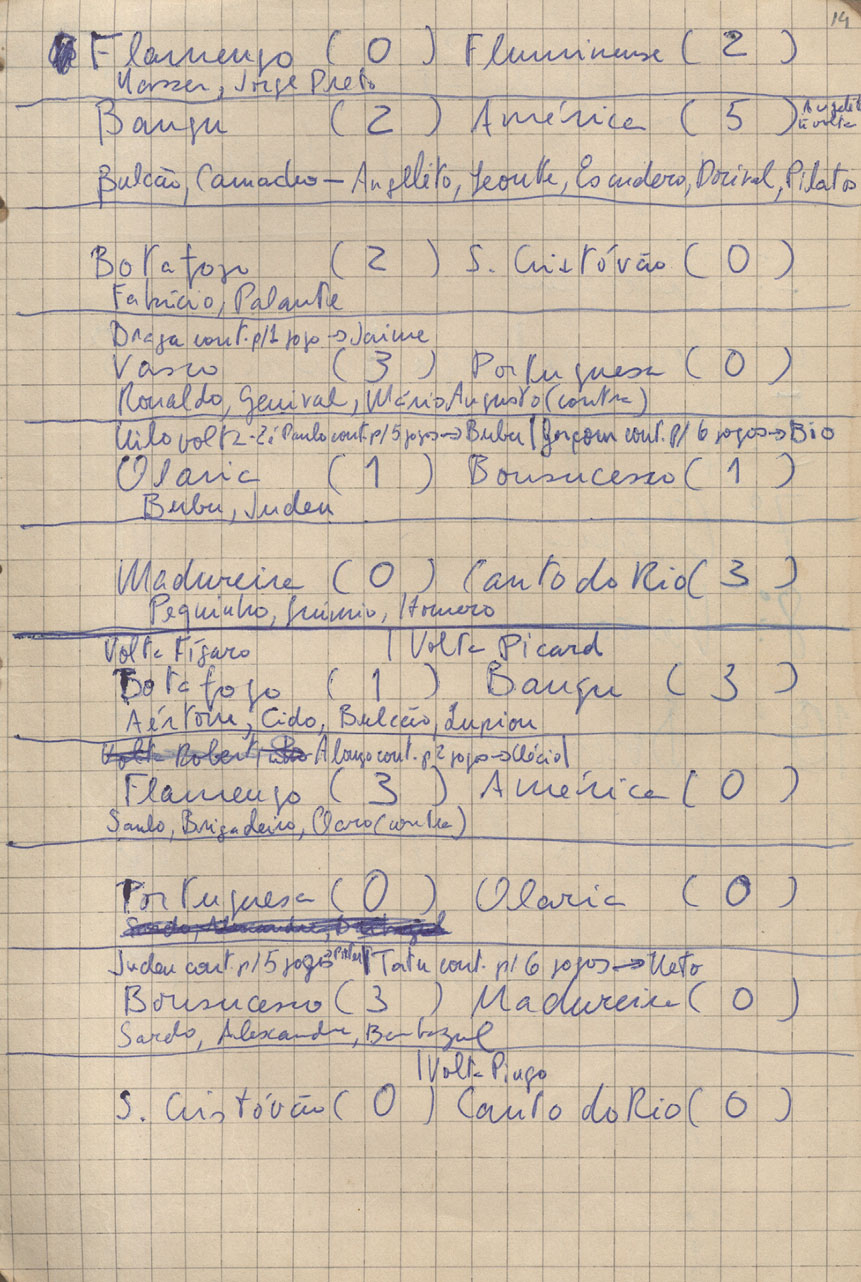 14
Flamengo ( 0 ) Fluminense ( 2 )
Nasser, Jorge Preto
Bangu ( 2 ) América ( 5 ) volta
Bulcão, Camacho — Angelito, Leonte, Escudero, Dorival, Pilatos
Botafogo ( 2 ) S. Cristóvão ( 0 )
Fabrício, Palante
Braga cont. p/ 1 jogo → Jaime
Vasco ( 3 ) Portuguesa ( 0 )
Ronaldo, Genival, Mário Augusto (contra)
Nilo volta - Zé Paulo cont. p/ 5 jogos → Bubu | Gerçom cont. p/ 6 jogos → Bio
Olaria ( 1 ) Bonsucesso ( 1 )
Bubu, Juden
Madureira ( 0 ) Canto do Rio ( 3 )
Pequinho, Homero
Volta Fígaro | Volta Picard
Botafogo ( 1 ) Bangu ( 3 )
Aértone, Cido, Bulcão, Lupion
Volta Robert cont. p/ 2 jogos → Clécio |
Flamengo ( 3 ) América ( 0 )
Saulo, Brigadeiro, Claro (contra)
Portuguesa ( 0 ) Olaria ( 0 )
Sardo, Alexandre,
Juden cont. p/ 5 jogos | Tatu cont. p/ 6 jogos → Neto
Bonsucesso ( 3 ) Madureira ( 0 )
Sardo, Alexandre, Barbazul
| Volta Pingo
S. Cristóvão ( 0 ) Canto do Rio ( 0 )